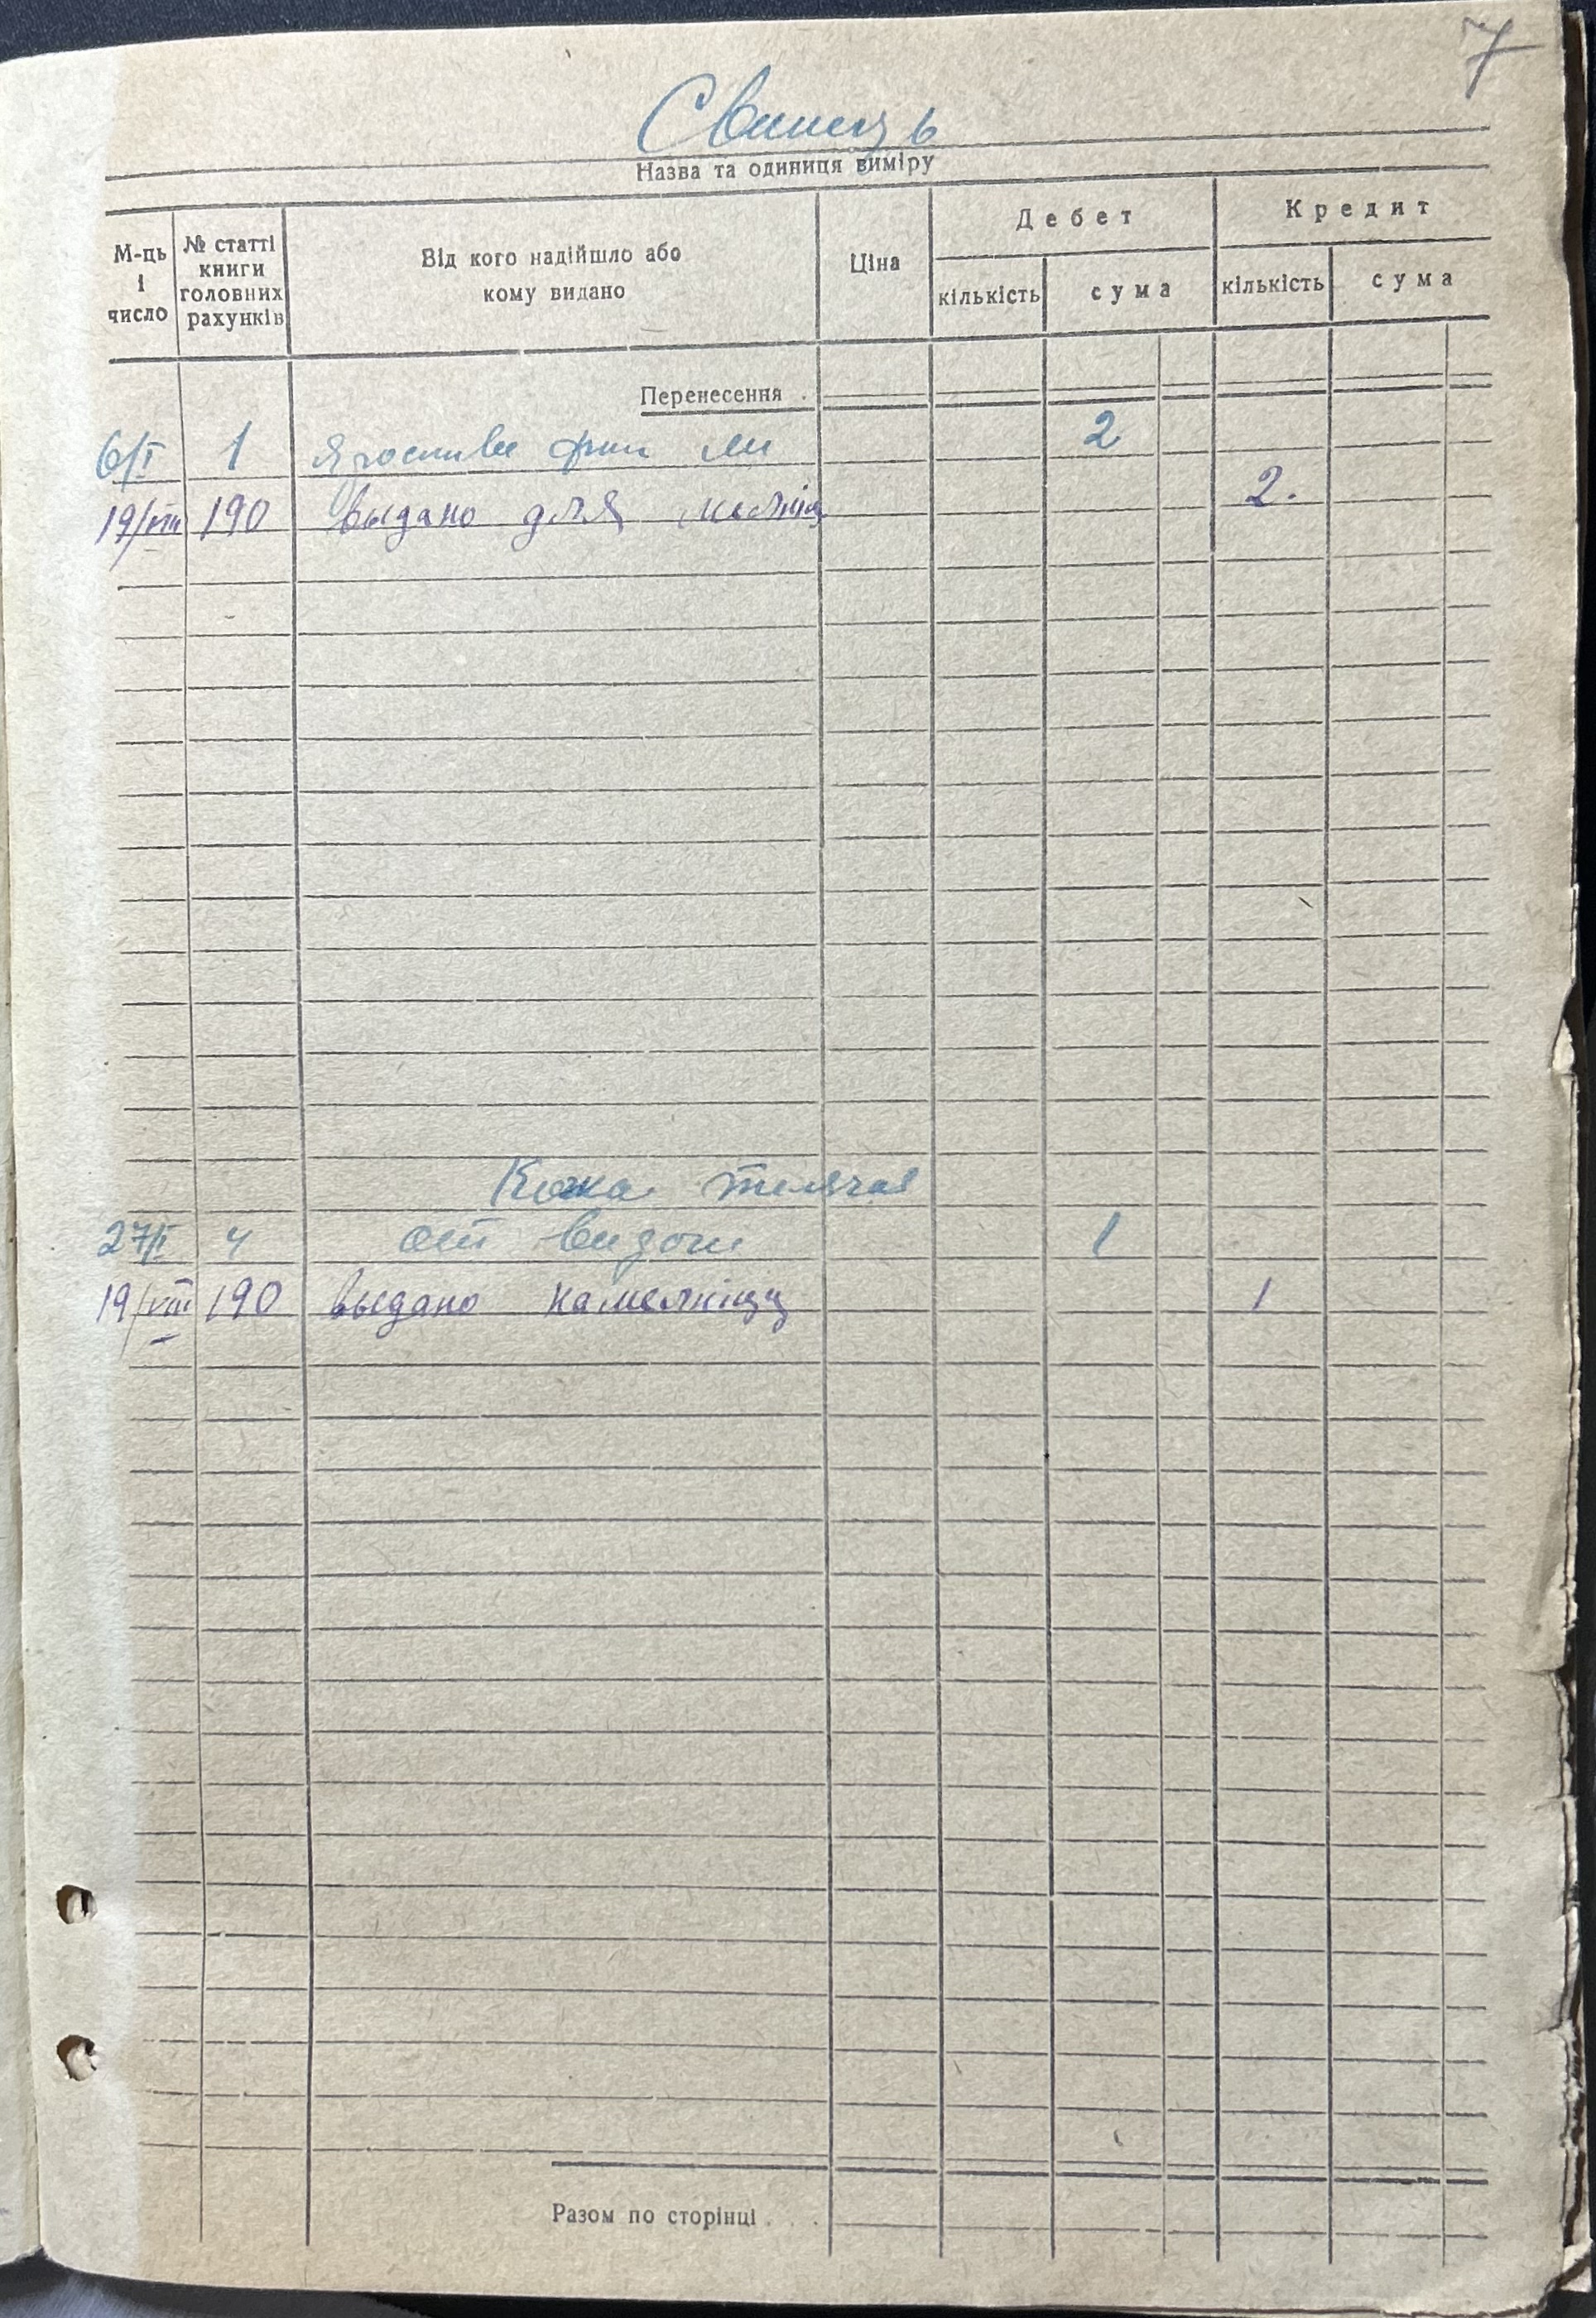 7
Свинець
Назва та одиниця виміру
М-ць і число
№ статті книги головних рахунків
Від кого надійшло або кому видано
Ціна
Дебет
Кредит
кількість
сума
кількість
сума
Перенесення .
6/I 1 2
19/VIII 190 выдано для 2.
Кожа телячая
27/I 4 от 1
19/VIII 190 выдано на мелницу 1
Разом по сторінці . . .